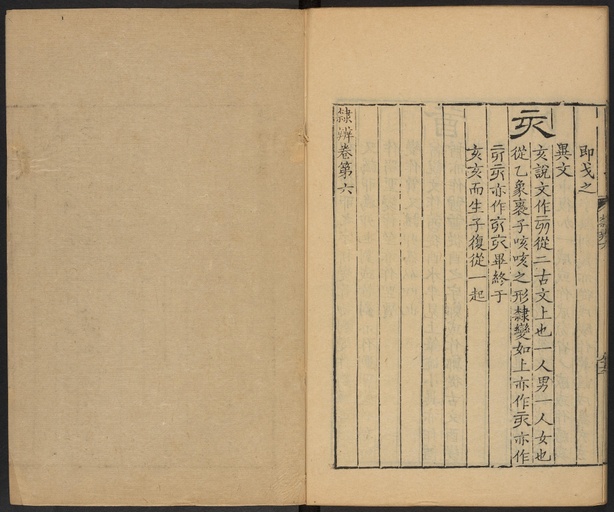 即戈之
異文
亥
亥說文作𠀅從二古文上也一人男一人女也
從乙象褢子咳咳之形隸變如上亦作亥亦作
亦作亥亥畢終于
亥亥而生子復從一起
隸辨卷第六